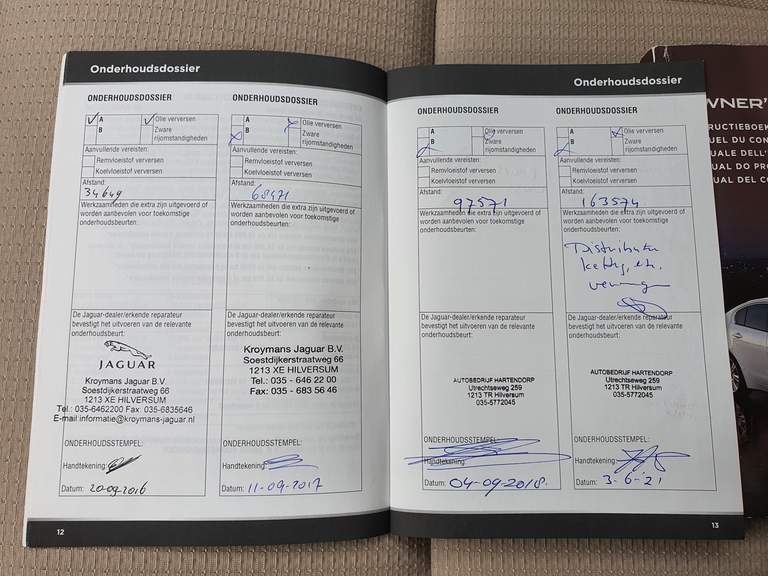 Onderhoudsdossier
ONDERHOUDSDOSSIER
A
Olie verversen
B
Zware
rijomstandigheden
Aanvullende vereisten:
Remvloeistof verversen
Koelvloeistof verversen
Afstand:
34649
Werkzaamheden die extra zijn uitgevoerd of
worden aanbevolen voor toekomstige
onderhoudsbeurten:
De Jaguar-dealer/erkende reparateur
bevestigt het uitvoeren van de relevante
onderhoudsbeurt:
JAGUAR
Kroymans Jaguar B.V.
Soestdijkerstraatweg 66
1213 XE HILVERSUM
Tel.: 035-6462200 Fax: 035-6835646
E-mail:informatie@kroymans-jaguar.nl
ONDERHOUDSSTEMPEL:
Handtekening:
Datum: 20-09-2016
ONDERHOUDSDOSSIER
A
Olie verversen
B
Zware
rijomstandigheden
Aanvullende vereisten:
Remvloeistof verversen
Koelvloeistof verversen
Afstand:
68471
Werkzaamheden die extra zijn uitgevoerd of
worden aanbevolen voor toekomstige
onderhoudsbeurten:
De Jaguar-dealer/erkende reparateur
bevestigt het uitvoeren van de relevante
onderhoudsbeurt:
Kroymans Jaguar B.V.
Soestdijkerstraatweg 66
1213 XE HILVERSUM
Tel.: 035 - 646 22 00
Fax: 035 - 683 56 46
ONDERHOUDSSTEMPEL:
Handtekening:
Datum: 11-09-2017
12
Onderhoudsdossier
ONDERHOUDSDOSSIER
A
Olie verversen
B
Zware
rijomstandigheden
Aanvullende vereisten:
Remvloeistof verversen
Koelvloeistof verversen
Afstand:
97571
Werkzaamheden die extra zijn uitgevoerd of
worden aanbevolen voor toekomstige
onderhoudsbeurten:
De Jaguar-dealer/erkende reparateur
bevestigt het uitvoeren van de relevante
onderhoudsbeurt:
AUTOBEDRIJF HARTENDORP
Utrechtseweg 259
1213 TR Hilversum
035-5772045
ONDERHOUDSSTEMPEL:
Handtekening:
Datum: 04-09-2018.
ONDERHOUDSDOSSIER
A
Olie verversen
B
Zware
rijomstandigheden
Aanvullende vereisten:
Remvloeistof verversen
Koelvloeistof verversen
Afstand:
163574
Werkzaamheden die extra zijn uitgevoerd of
worden aanbevolen voor toekomstige
onderhoudsbeurten:
De Jaguar-dealer/erkende reparateur
bevestigt het uitvoeren van de relevante
onderhoudsbeurt:
AUTOBEDRIJF HARTENDORP
Utrechtseweg 259
1213 TR Hilversum
035-5772045
ONDERHOUDSSTEMPEL:
Handtekening:
Datum: 3-6-21
13
WNER'
RUCTIEBOEK
UEL DU CON
UALE DELL'
UAL DO PRO
UAL DEL CO